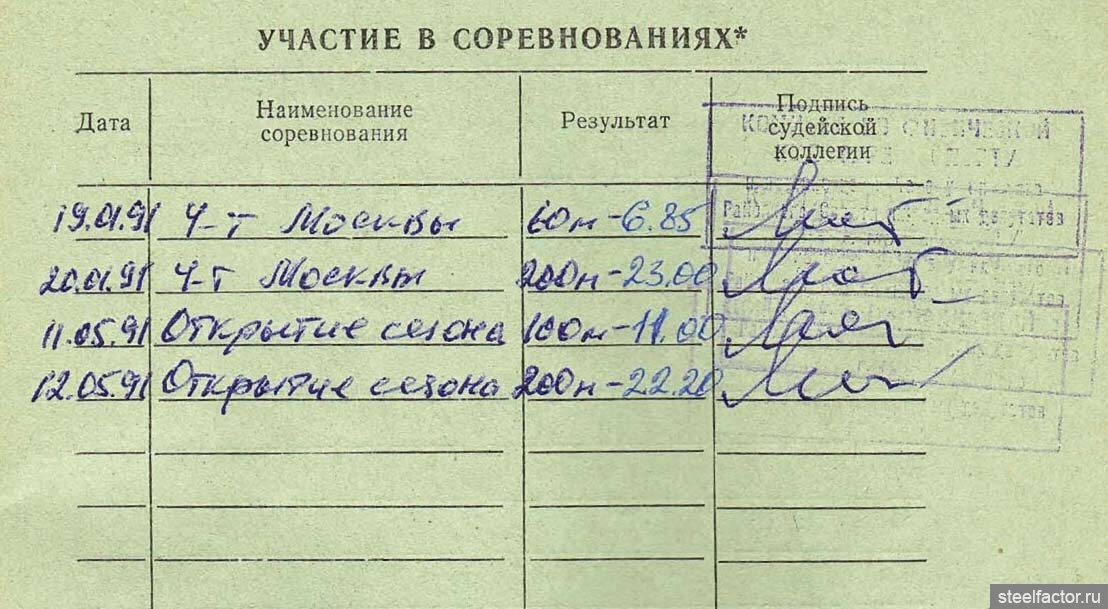 УЧАСТИЕ В СОРЕВНОВАНИЯХ*
Дата
Наименование соревнования
Результат
Подпись судейской коллегии
19.01.91 Ч-т Москвы 60м-6.85
20.01.91 Ч-т Москвы 200м-23.00
11.05.91 Открытие сезона 100м-11.00
12.05.91 Открытие сезона 200м-22.20
steelfactor.ru